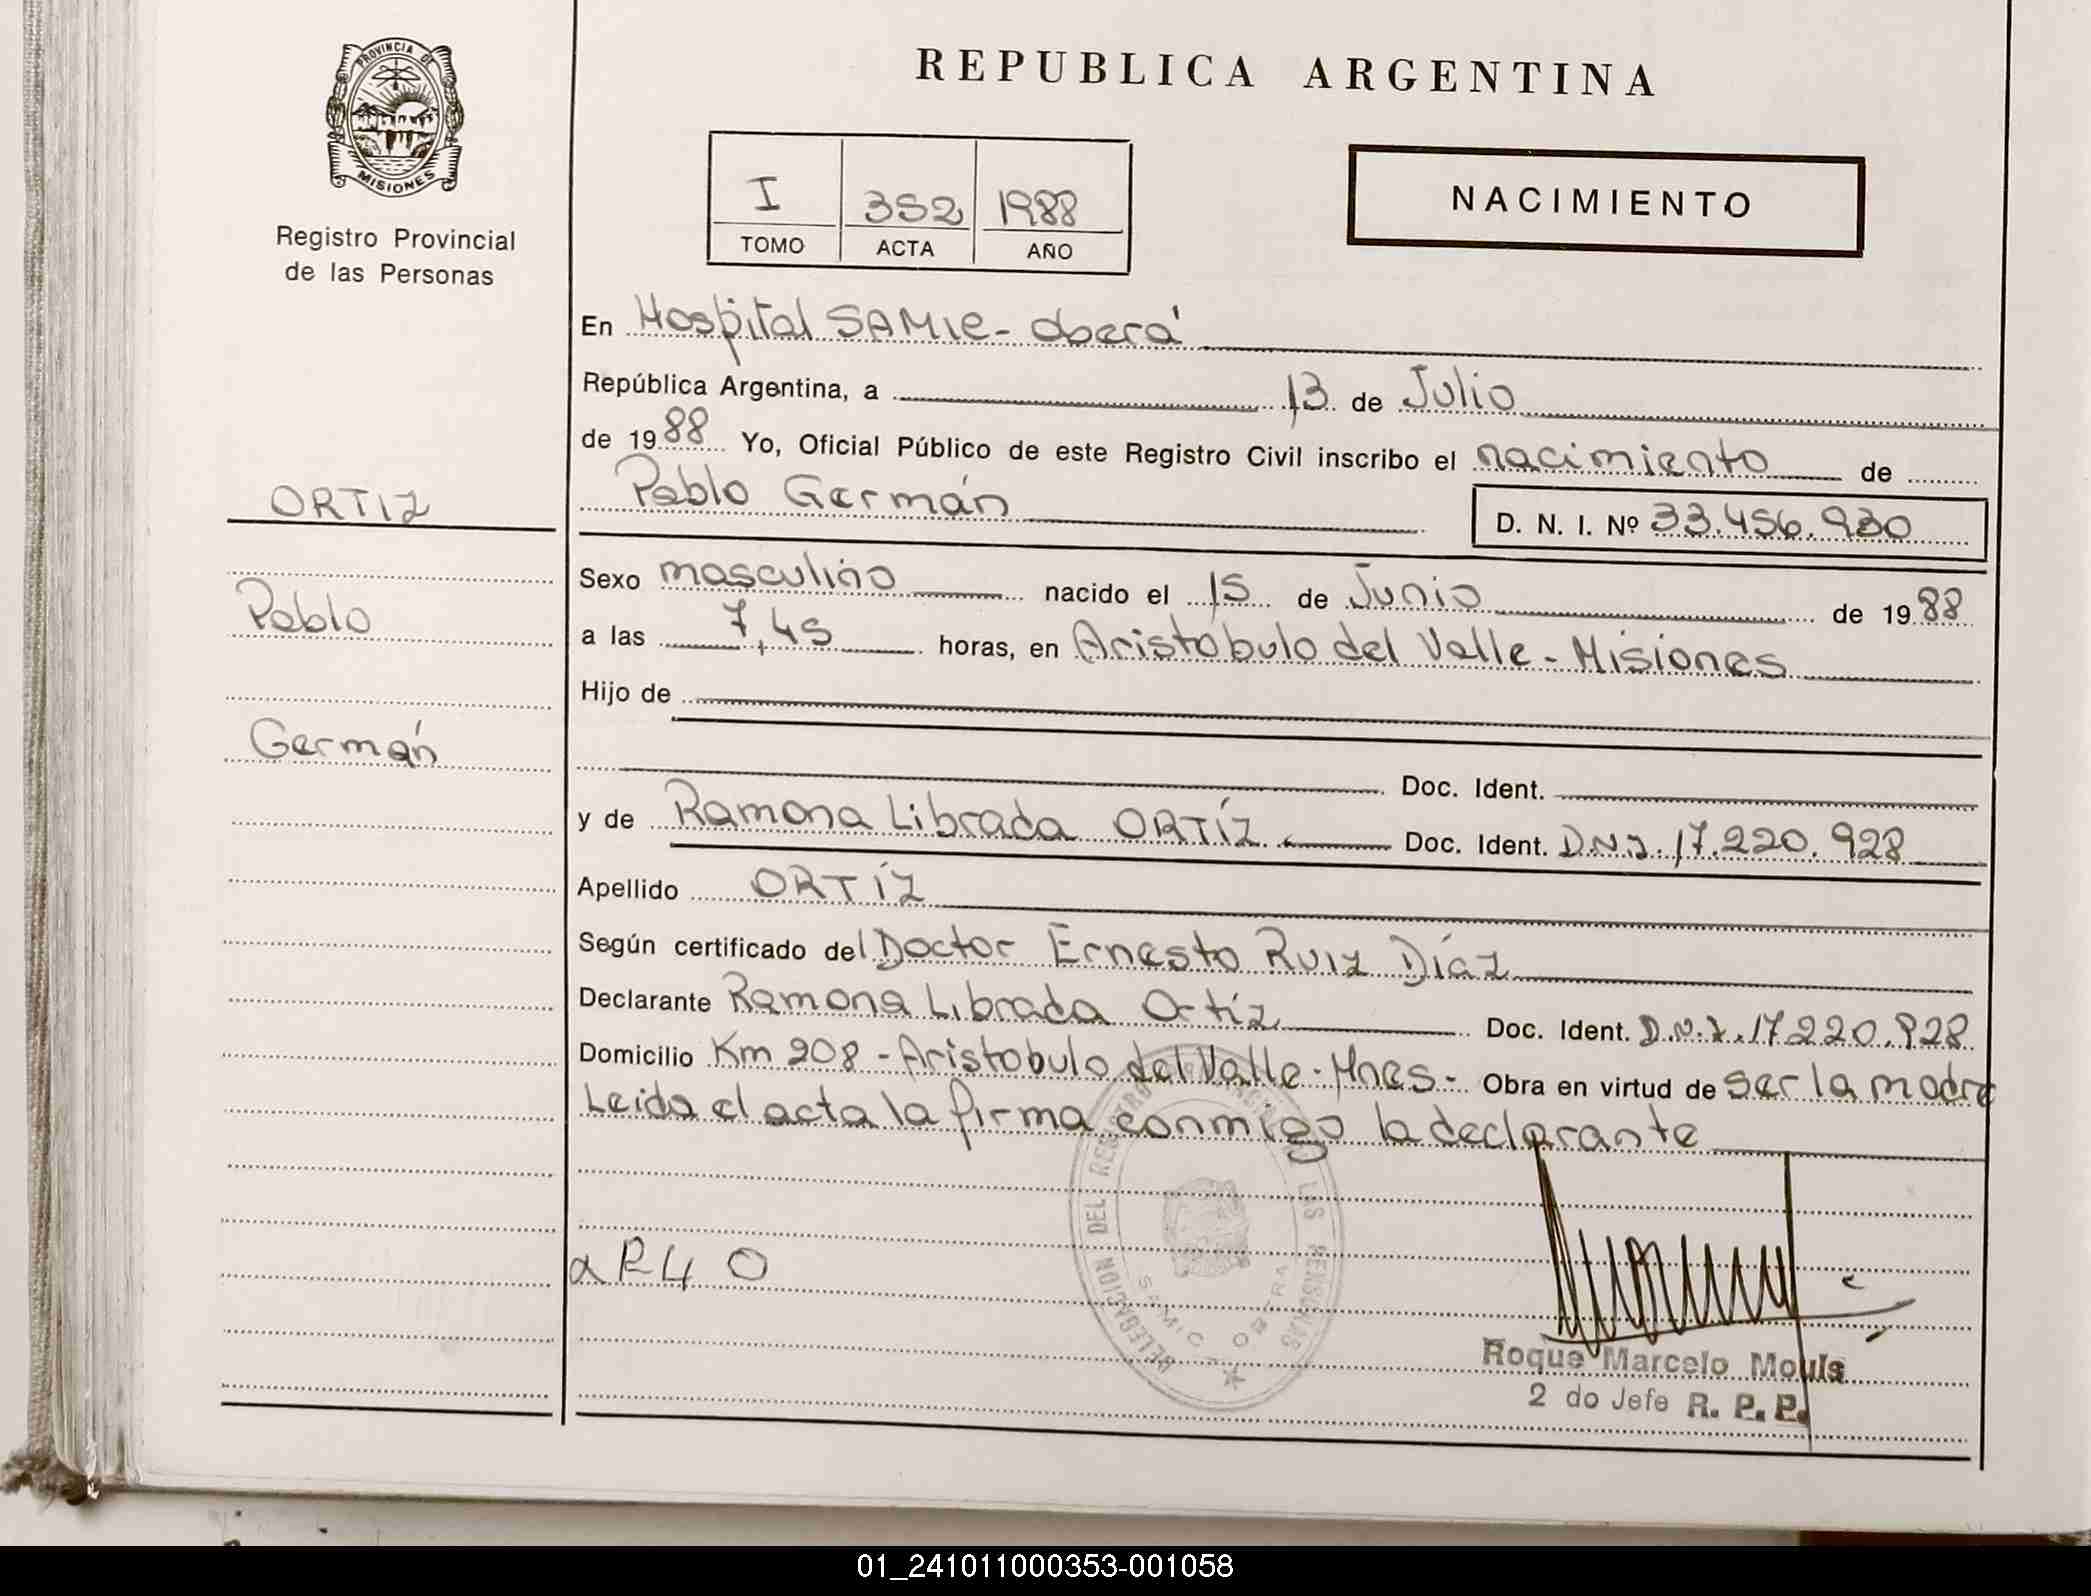 PROVINCIA DE
MISIONES
Registro Provincial
de las Personas
REPUBLICA ARGENTINA
I 352 1988
TOMO ACTA AÑO
NACIMIENTO
En Hospital SAMIC - Oberá
República Argentina, a 13 de Julio
de 1988 Yo, Oficial Público de este Registro Civil inscribo el nacimiento de
Pablo Germán D. N. I. Nº 33.456.930
ORTIZ
Pablo
Germán
Sexo masculino nacido el 15 de Junio de 1988
a las 7,45 horas, en Aristóbulo del Valle - Misiones
Hijo de
Doc. Ident.
y de Ramona Librada ORTÍZ Doc. Ident. D.N.I. 17.220.928
Apellido ORTÍZ
Según certificado del Doctor Ernesto Ruiz Díaz
Declarante Ramona Librada Ortíz Doc. Ident. D.N.I. 17.220.928
Domicilio Km 208 - Aristobulo del Valle - Mnes - Obra en virtud de ser la madre
Leida el acta la firma conmigo la declarante
DELEGACION DEL REGISTRO LAS PERSONAS
SAMIC OBERA
Roque Marcelo Mouls
2 do Jefe R. P. P.
01_241011000353-001058